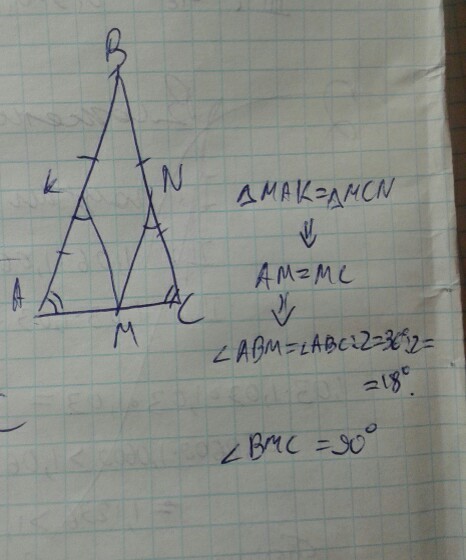 B
K
N
A
M
C
ΔMAK=ΔMCN
⇓
AM=MC
⇓
∠ABM=∠ABC:2=36°:2=
=18°.
∠BMC =90°